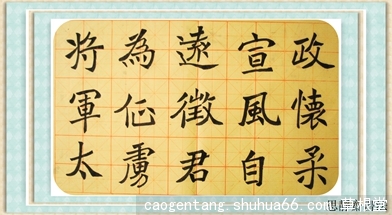 政懷柔
宣風自
遠徵君
為征虜
將軍太
caogentang.shuhua66.com 草根堂